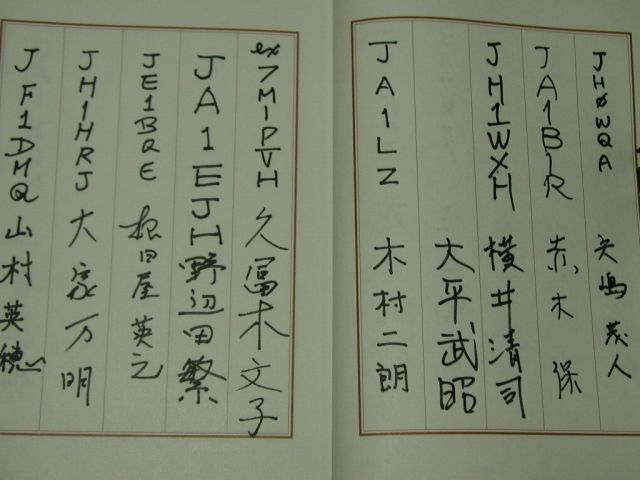 JHØWQA 矢嶋 茂人
JA1BIR 赤木 保
JH1WXH 横井清司
大平武昭
JA1LZ 木村二朗
ex7M1PVH 久冨木文子
JA1EJH 野辺田繁
JE1BQE 根日屋 英之
JH1HRJ 大家万明
JF1DMQ 山村英穂